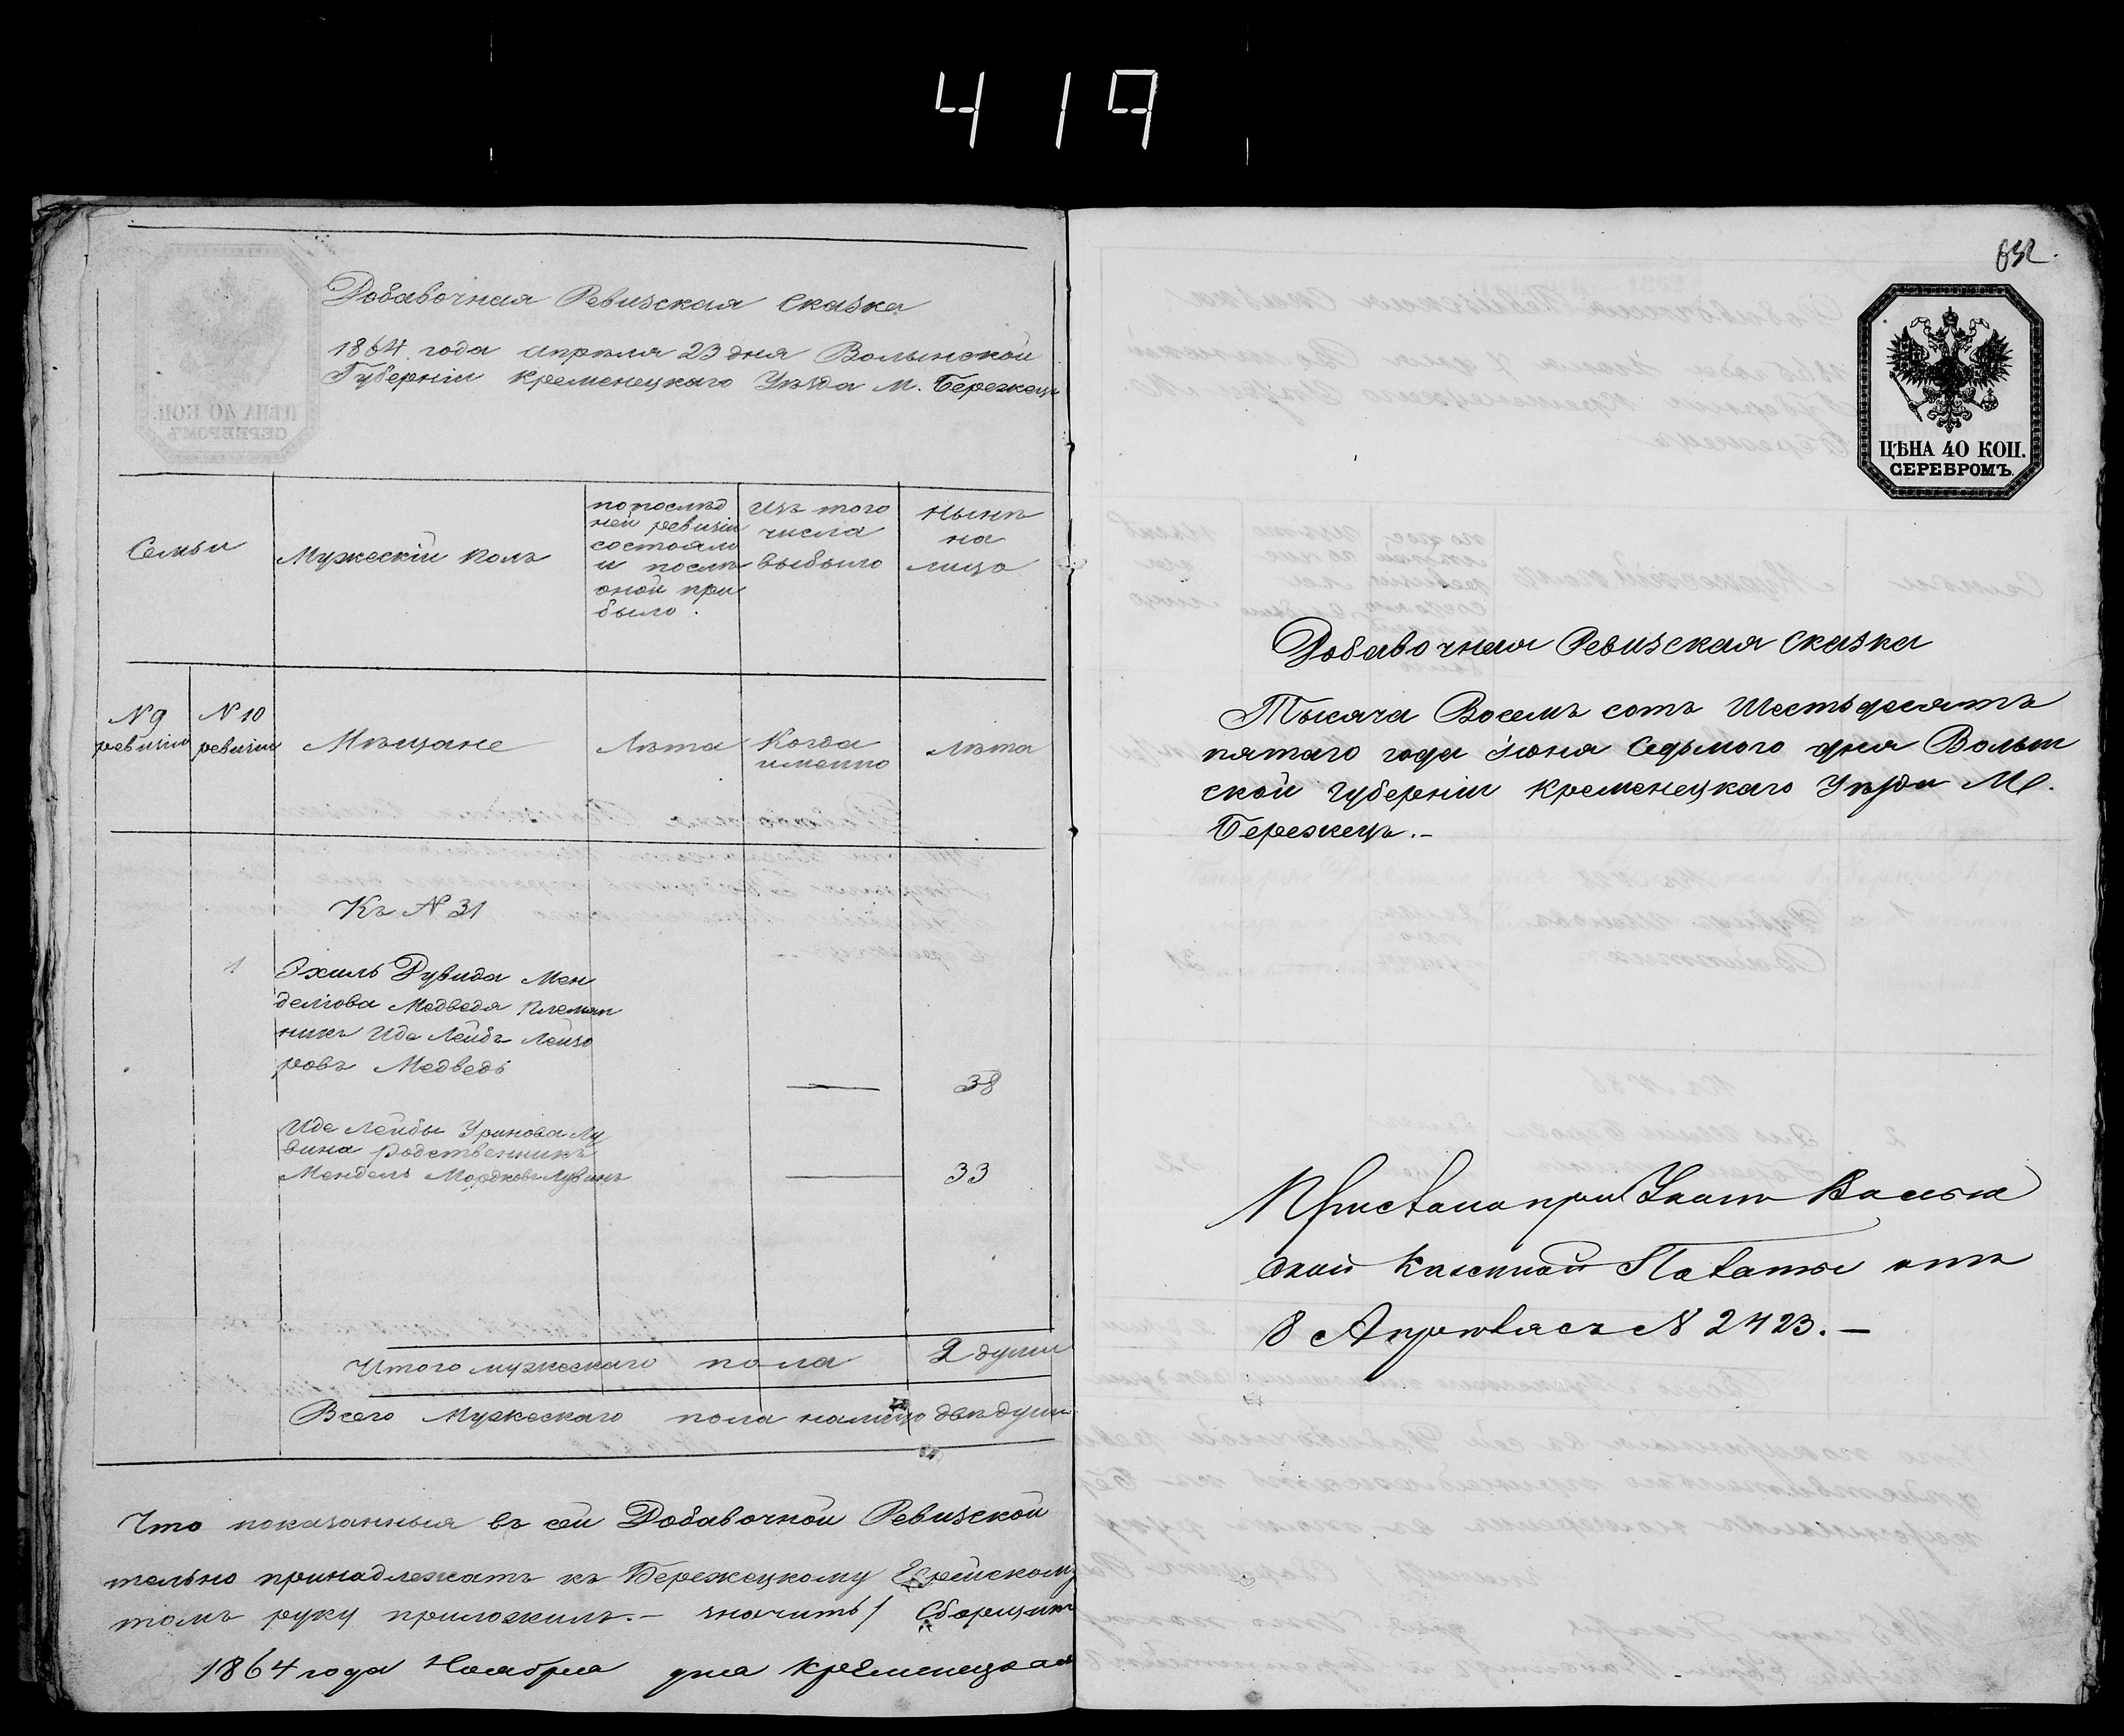 419
Добавочная Ревизская Сказка
1864 года апрѣля 23 дня Волынской
Губерніи Кременецкаго Уѣзда М. Бережецъ
Семьи
Мужескій полъ
по послѣд
ней ревизіи
состояли
и послѣ
оной при
было.
изъ того
числа
выбыло
нынѣ
на
лицо
№ 9
ревизіи
№ 10
ревизіи
Мѣщане
Лѣта
Когда
именно
лѣта
Къ № 31
1
Эхиль Дувида Мен
делiова Медведя Племян
никъ Иде Лейбъ Лейзо
ровъ Медведь
38
Иде Лейбы Уринова Лу
вина родственникъ
Мендель Мордковъ Лувинъ
33
Итого мужескаго пола 2 души
Всего Мужескаго пола налицо двѣ души
Что показанныя въ сей Добавочной Ревизской
тельно принадлежатъ къ Бережецкому Еврейскому
томъ руку приложилъ.- значитъ / Сборщикъ
1864 года Ноября дня Кременецкая
632.
ЦѢНА 40 КОП.
СЕРЕБРОМЪ.
Добавочная Ревизская Сказка
Тысяча Восемъ сотъ Шестьдесятъ
пятаго года іюня Седьмого дня Волын
ской Губерніи Кременецкаго Уѣзда М.
Бережецъ.-
при Указѣ Волын
ской Казенной Палаты отъ
8 Апрѣля съ № 2423.-